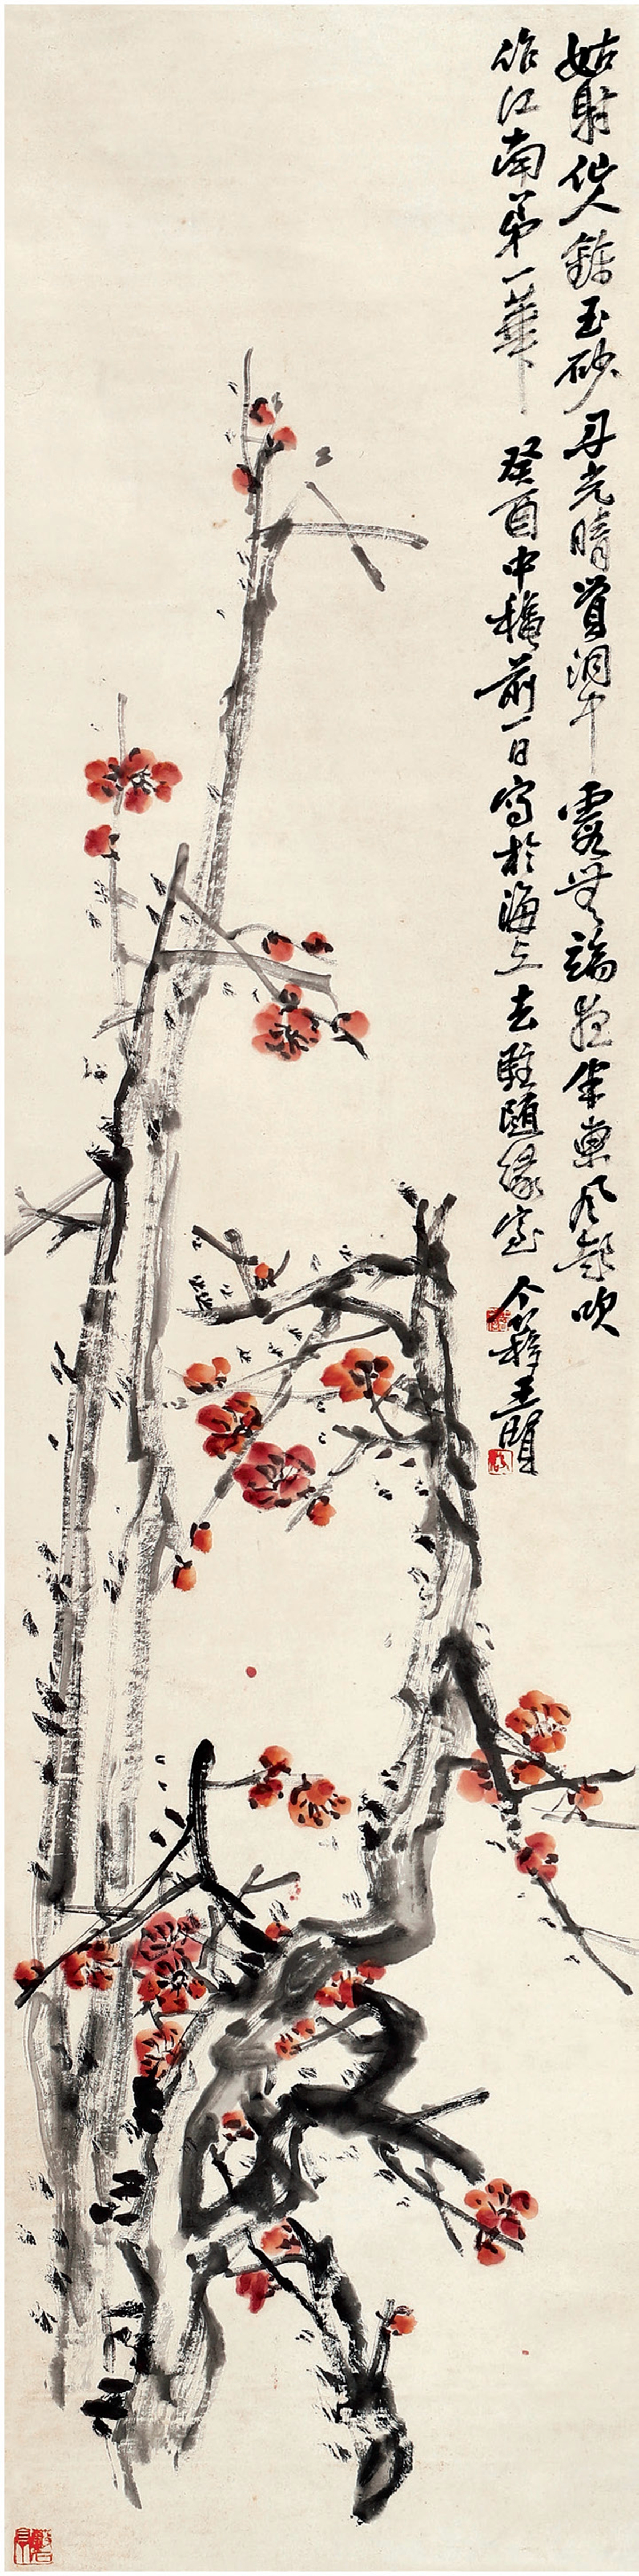 姑射仙人鍊玉砂丹光晴貫洞中霞無端夜半東風起吹
作江南第一華 癸酉中穐前一日寫於海上去駐隨緣室 个簃王賢